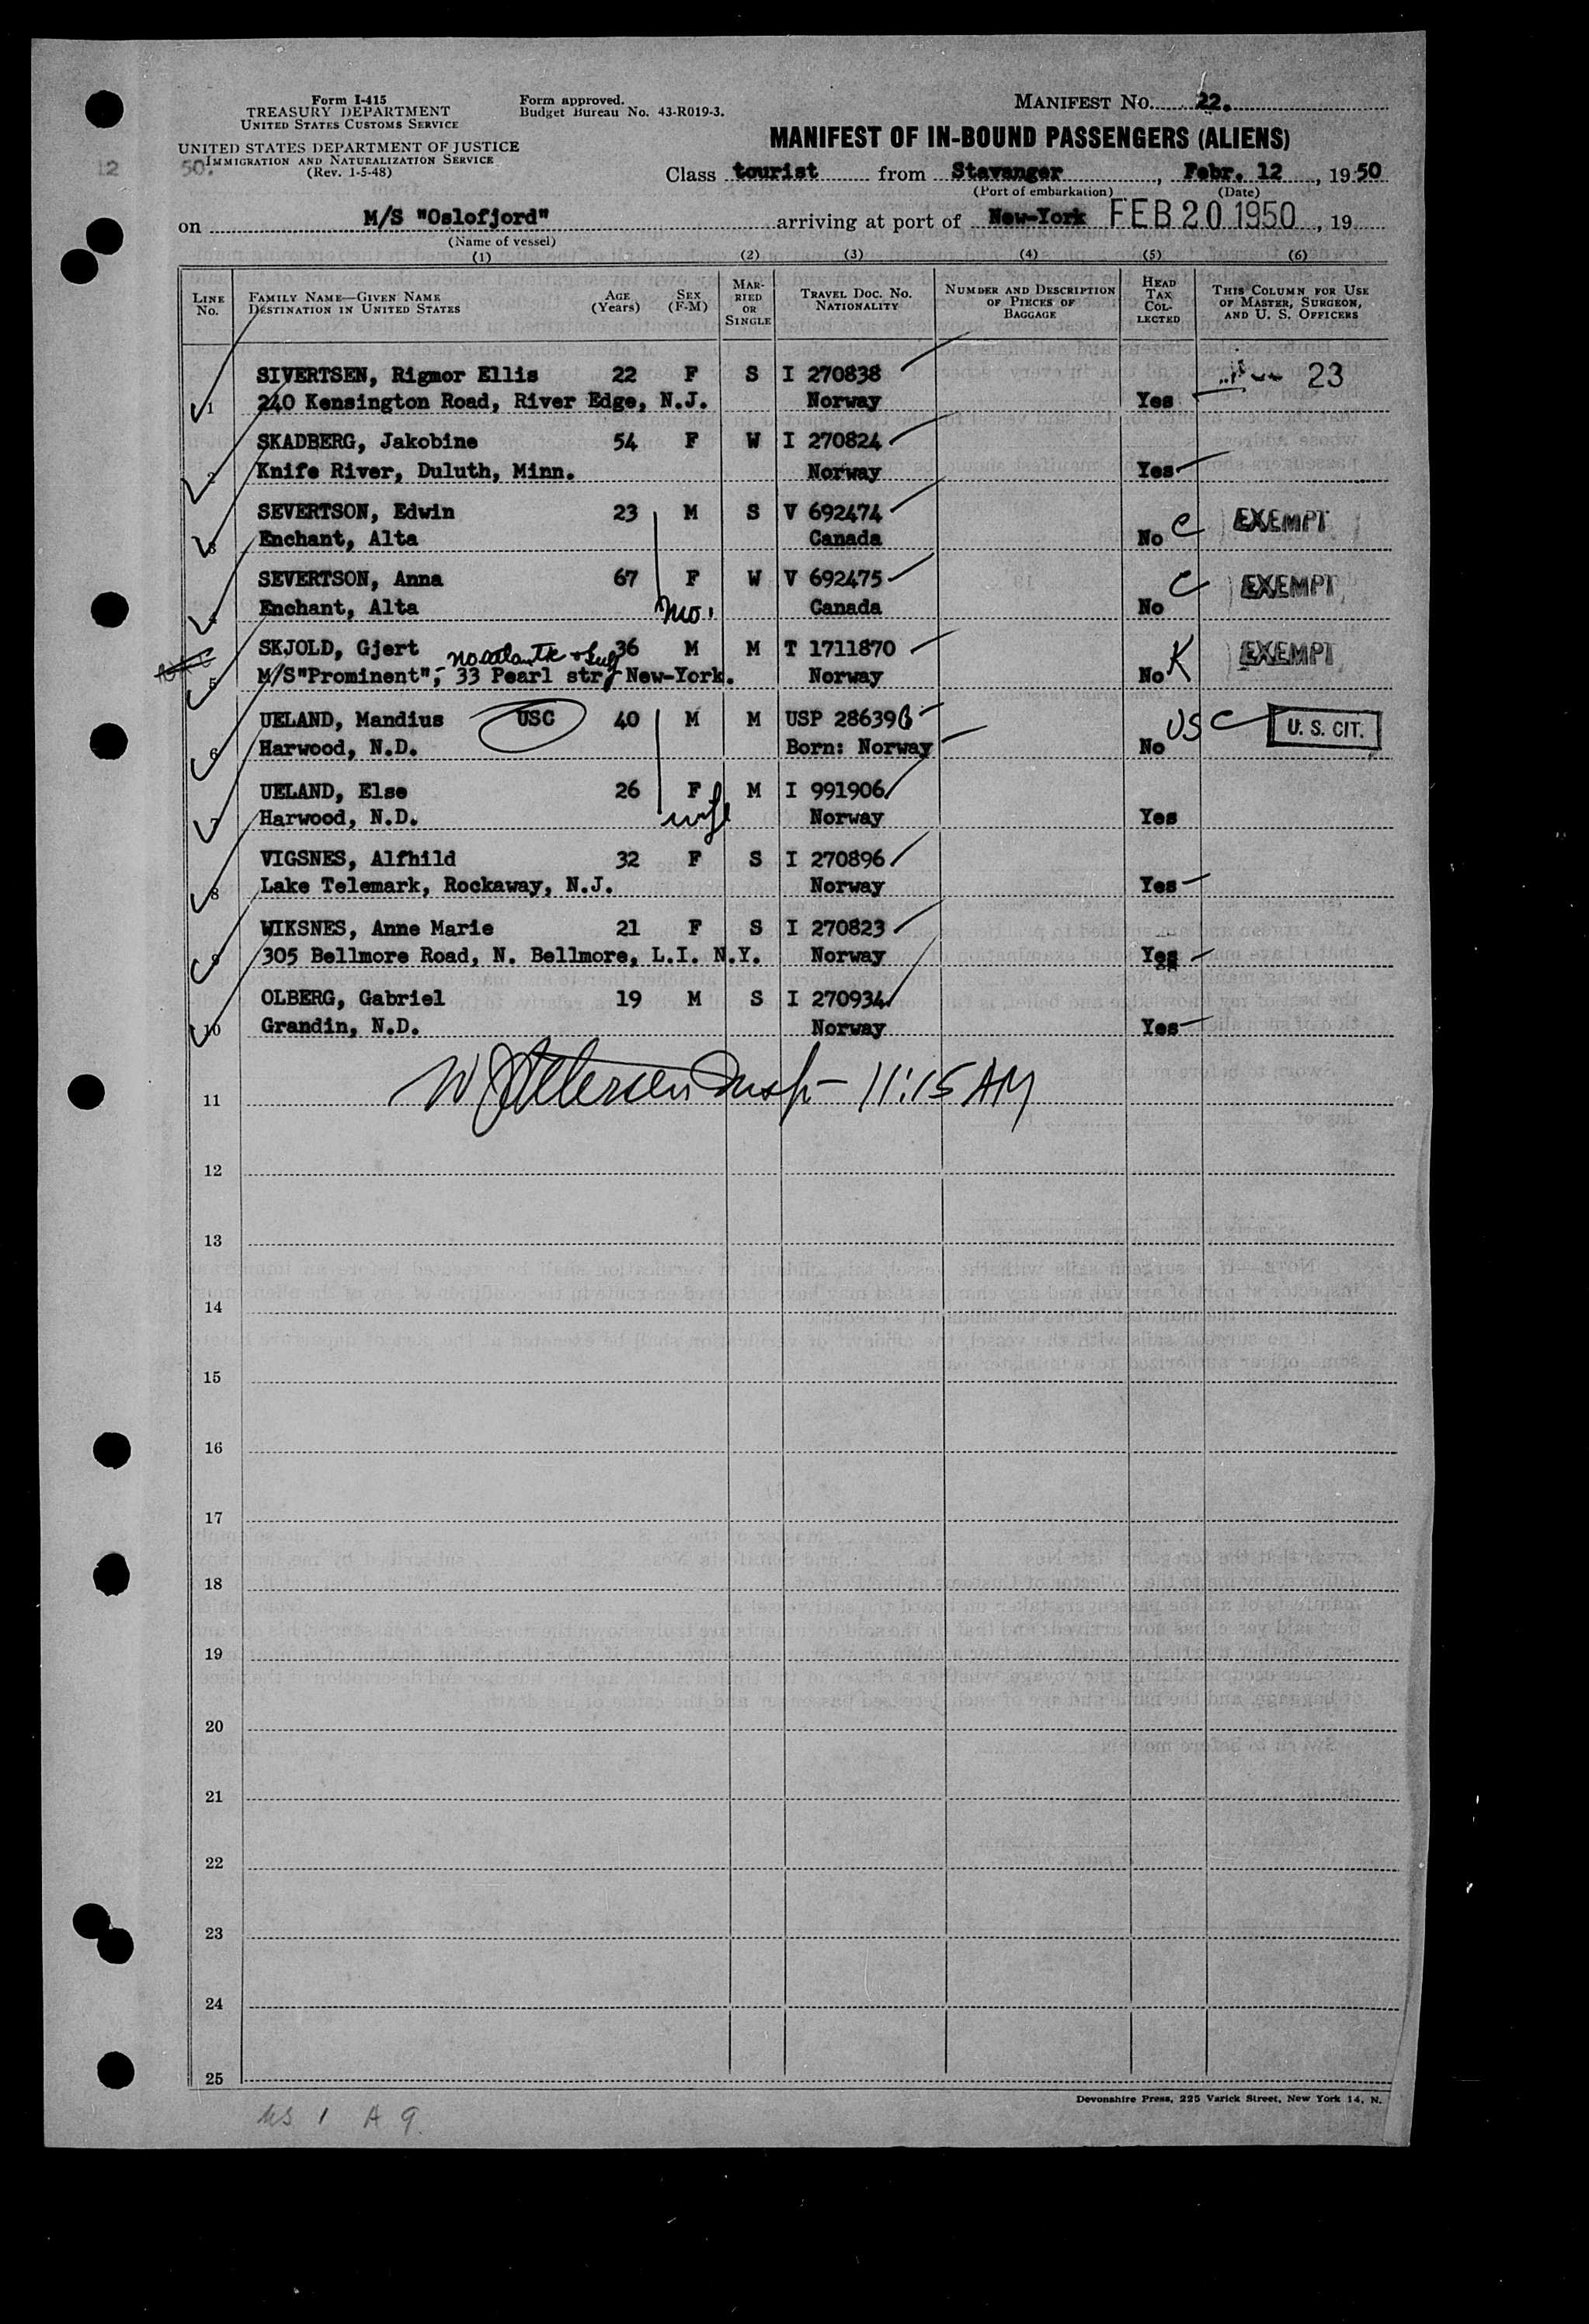 Form I-415
TREASURY DEPARTMENT
UNITED STATES CUSTOMS SERVICE
UNITED STATES DEPARTMENT OF JUSTICE
IMMIGRATION AND NATURALIZATION SERVICE
(Rev. 1-5-48)
Form approved.
Budget Bureau No. 43-R019-3.
MANIFEST No. 22.
MANIFEST OF IN-BOUND PASSENGERS (ALIENS)
12 50.
Class tourist from Stavanger, Febr. 12, 1950
(Port of embarkation) (Date)
on M/S "Oslofjord" arriving at port of New-York FEB 20 1950, 19
(Name of vessel)
(1) (2) (3) (4) (5) (6)
LINE No. FAMILY NAME—GIVEN NAME DESTINATION IN UNITED STATES AGE (Years) SEX (F-M) MARRIED OR SINGLE TRAVEL DOC. NO. NATIONALITY NUMBER AND DESCRIPTION OF PIECES OF BAGGAGE HEAD TAX COLLECTED THIS COLUMN FOR USE OF MASTER, SURGEON, AND U. S. OFFICERS
SIVERTSEN, Rigmor Ellis 22 F S I 270838 23
1 240 Kensington Road, River Edge, N.J. Norway Yes
SKADBERG, Jakobine 54 F W I 270824
2 Knife River, Duluth, Minn. Norway Yes
SEVERTSON, Edwin 23 M S V 692474 EXEMPT
3 Enchant, Alta Canada No C
SEVERTSON, Anna 67 F W V 692475 C EXEMPT
4 Enchant, Alta mo. Canada No
SKJOLD, Gjert 36 M M T 1711870 EXEMPT
No Atlantic & Gulf
5 M/S"Prominent", 33 Pearl str, New-York. Norway No K
UELAND, Mandius USC 40 M M USP 28639B USC U. S. CIT.
6 Harwood, N.D. Born: Norway No
UELAND, Else 26 F M I 991906
7 Harwood, N.D. wife Norway Yes
VIGSNES, Alfhild 32 F S I 270896
8 Lake Telemark, Rockaway, N.J. Norway Yes
WIKSNES, Anne Marie 21 F S I 270823
9 305 Bellmore Road, N. Bellmore, L.I. N.Y. Norway Yes
OLBERG, Gabriel 19 M S I 270934
10 Grandin, N.D. Norway Yes
11 Insp 11:15 AM
12
13
14
15
16
17
18
19
20
21
22
23
24
25
Devonshire Press, 225 Varick Street, New York 14, N.
US 1 A 9